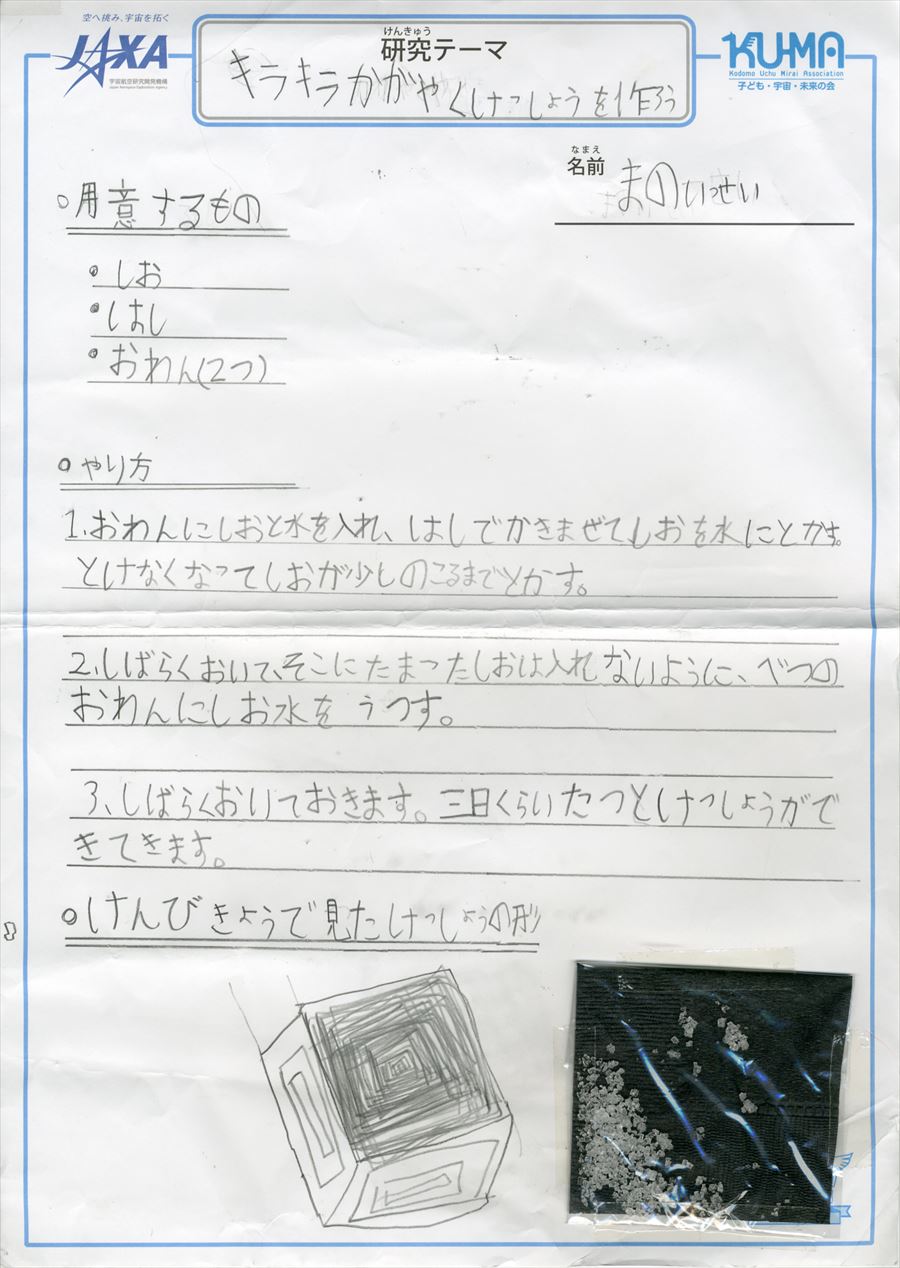 空へ挑み、宇宙を拓く
JAXA
宇宙航空研究開発機構
Japan Aerospace Exploration Agency
けんきゅう
研究テーマ
キラキラかがやくけっしょうを作ろう
KU-MA
Kodomo Uchu Mirai Association
子ども・宇宙・未来の会
なまえ
名前 まのいっせい
○用意するもの
・しお
・はし
・おわん(2つ)
○やり方
1.おわんにしおと水を入れ、はしでかきまぜてしおを水にとかす。
とけなくなってしおが少しのこるまでとかす。
2.しばらくおいて、そこにたまったしおは入れないように、べつの
おわんにしお水をうつす。
3.しばらくおいておきます。三日くらいたつとけっしょうがで
きてきます。
○けんびきょうで見たけっしょうの形